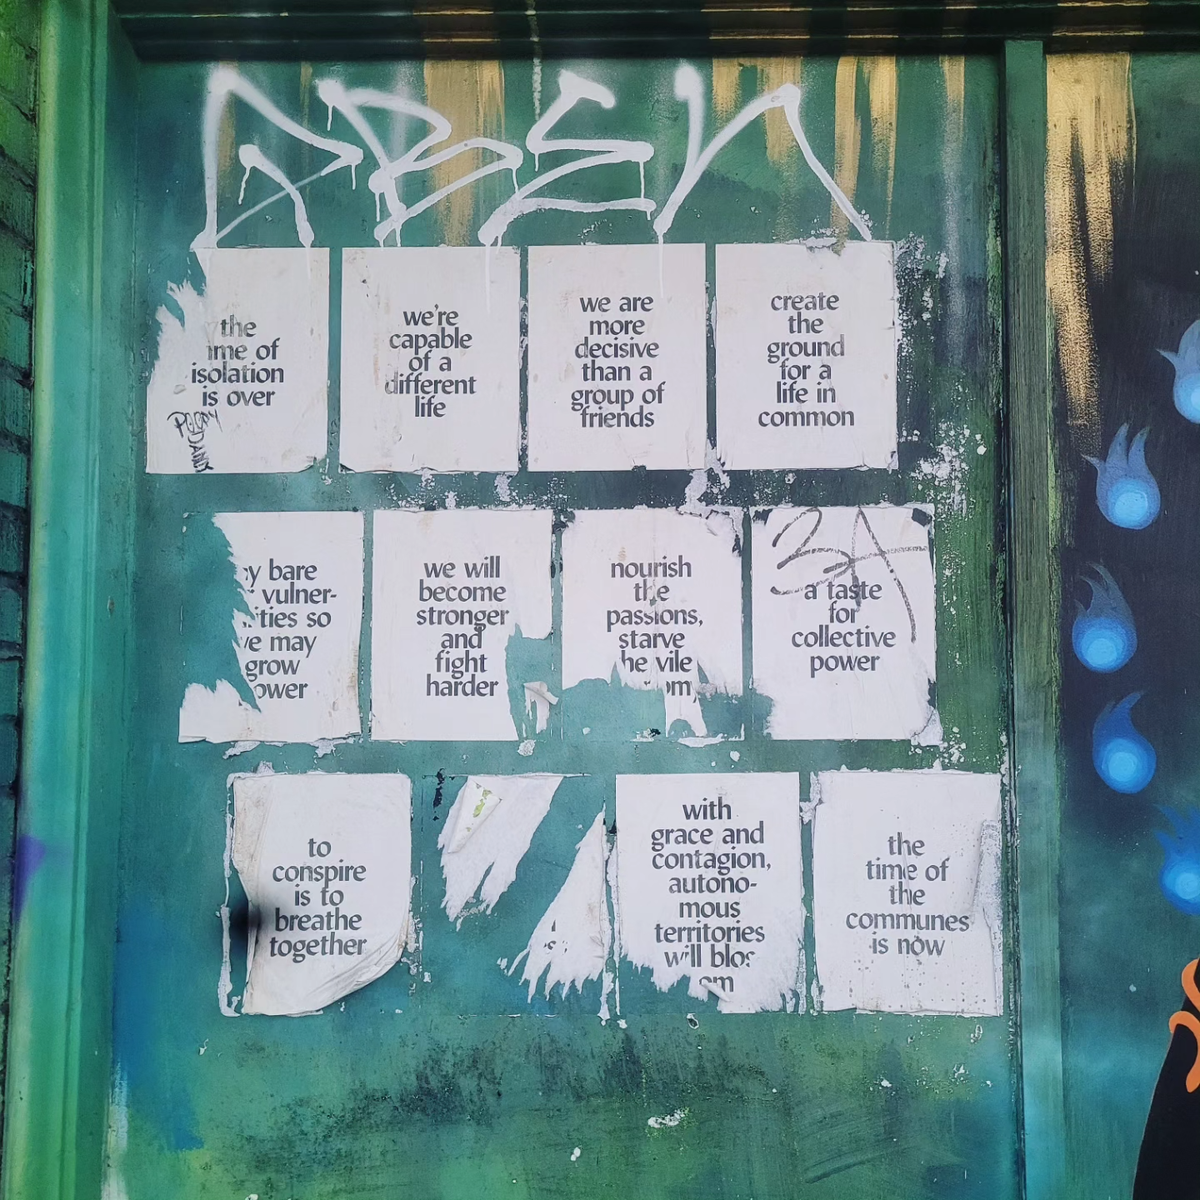 the
ime of
isolation
is over
we're
capable
of a
different
life
we are
more
decisive
than a
group of
friends
create
the
ground
for a
life in
common
y bare
vulner-
ities so
ve may
grow
ower
we will
become
stronger
and
fight
harder
nourish
the
passions,
starve
he vile
om
3A
a taste
for
collective
power
to
conspire
is to
breathe
together
with
grace and
contagion,
autono-
mous
territories
will blos
om
the
time of
the
communes
is now